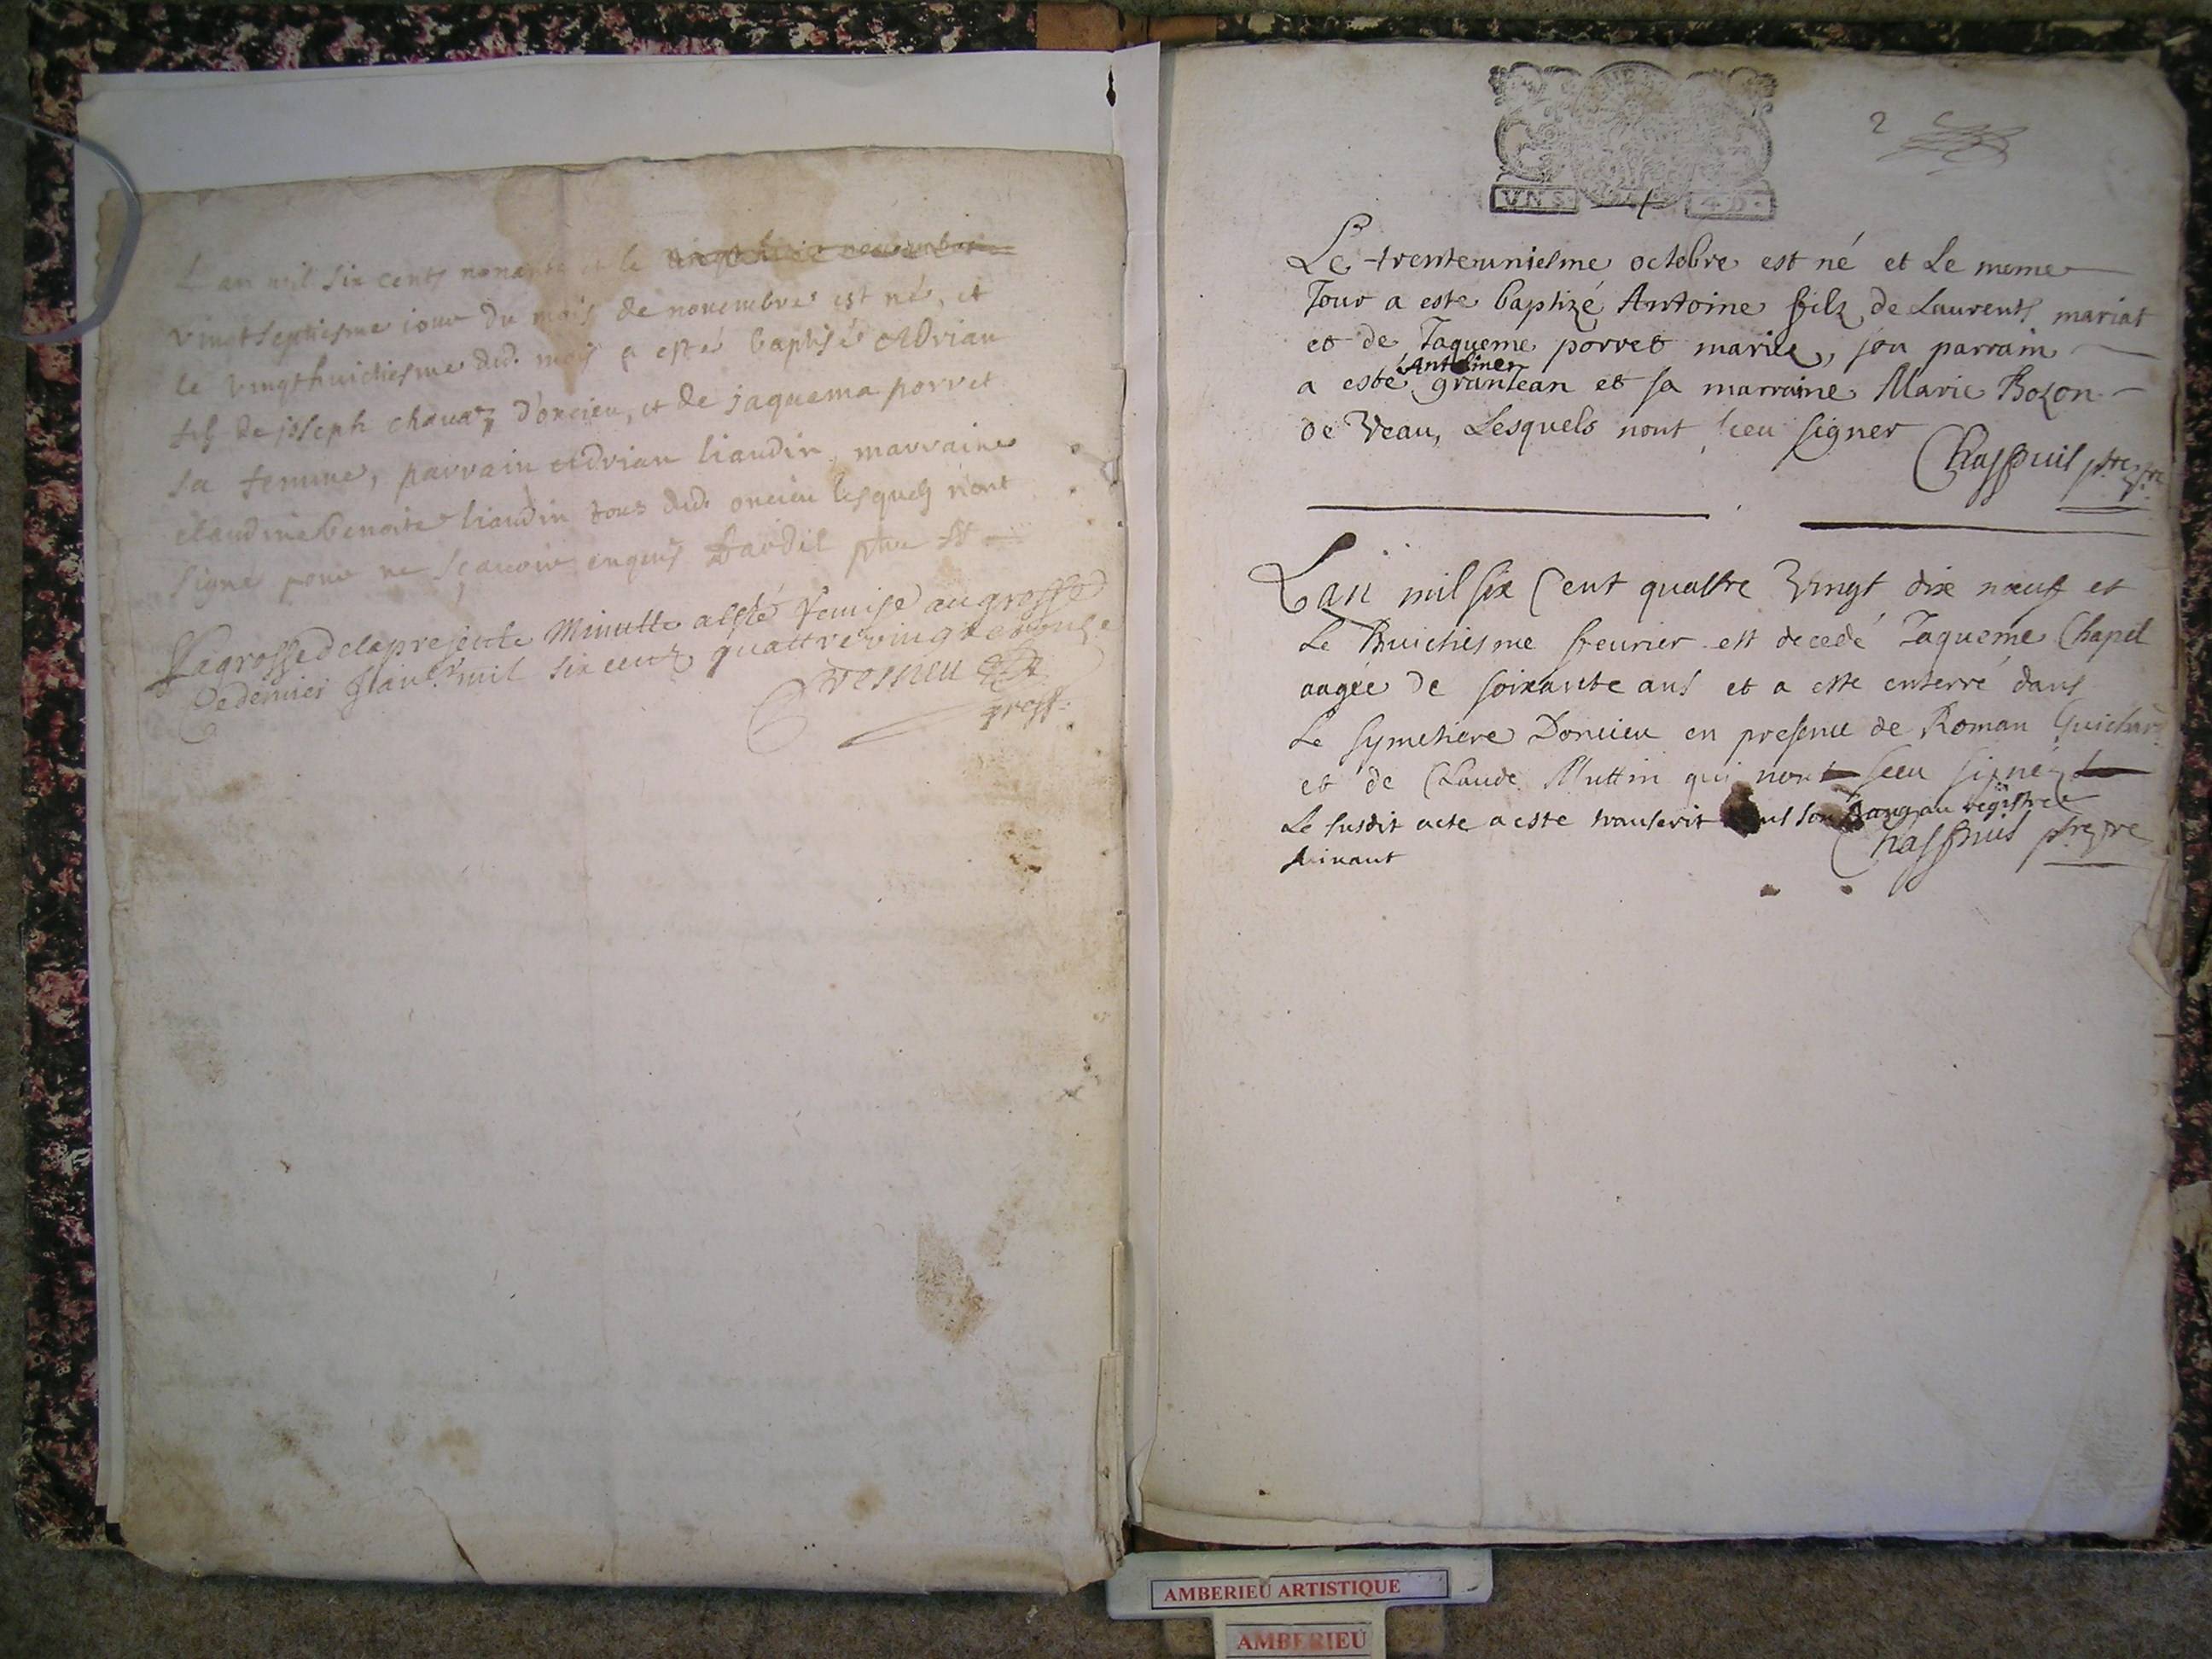 Lan mil six cents nonante et le vingthuit novembre
vingtseptiesme iour du mois de novembre est né, et
le vingthuictiesme dud. mois a esté baptisé Adrian
fils de joseph chavaz d'oncieu, et de jaquema porret
sa femme, parrain Adrian liaudin, marraine
claudine benoite liaudin tous dud. oncieu lesquels n'ont
signé pour ne sçavoir enquis
La grosse de la presente Minutte a esté remise au greffe
ce dernier Janer mil six cent quattrevingt et onze
gress.
2
VN S. 4 D.
Le trenteuniesme octobre est né et Le meme
Jour a este baptizé Antoine filz de Laurents mariat
et de Jaqueme porret mariez, son parrain
Antoine
a esté granjean et sa marraine Marie Bozon
de Veau, Lesquels nont sceu signer
Chassuil ptre
Lan mil six Cent quattre Vingt dix nœuf et
Le huictiesme feurier est decedé Jaqueme Chapel
aagée de soixante ans et a esté enterré dans
Le symetiere Doncieu en presence de Roman Guichard
et de Claude Muttin qui nont sceu signé
Le susdit acte a este transcrit son rang au registre
suivant
Chassuil ptre
AMBERIEU ARTISTIQUE
AMBERIEU